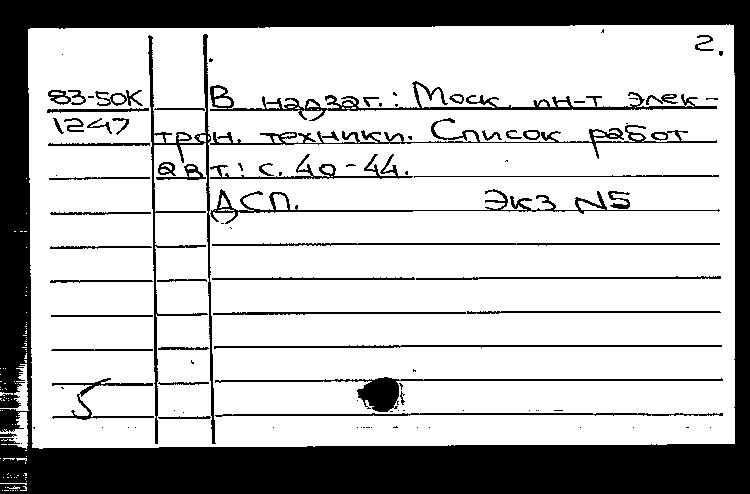 2.
83-50К В надзаг.: Моск. ин-т элек-
1247 трон. техники. Список работ
авт.: с. 40-44.
ДСП. Экз N5
5